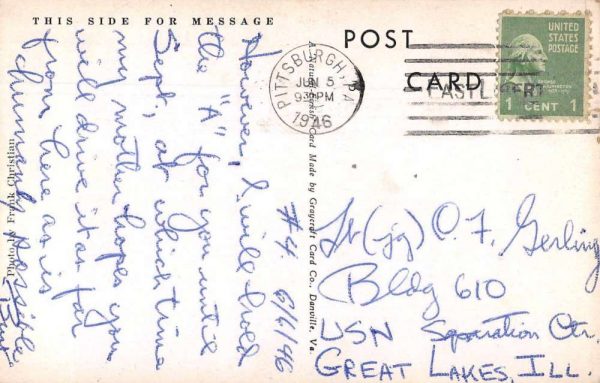 THIS SIDE FOR MESSAGE
#4 6/6/46
However, I will hold
the "A" for you until
Sept, at which time
my mother hopes you
will drive it as far
from here as is
humanly possible
Photo by Frank Christian
A Natural Finish Card Made by Graycraft Card Co., Danville, Va.
POST
CARD
PITTSBURGH, PA.
JUN 5
9 30 PM
1946
UNITED
STATES
POSTAGE
1 CENT 1
Lt (jg) O. F. Gerling
Bldg 610
USN Separation Ctr.
GREAT LAKES, ILL.